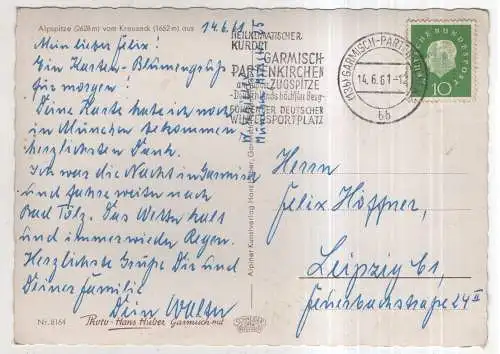 Alpspitze (2628 m) vom Kreuzeck (1652 m) aus
14.6.61
Mein lieber Felix!
Ein Karten-Blumengruß
für morgen!
Deine Karte habe ich noch
in München bekommen
herzlichsten Dank.
Ich war die Nacht in Garmisch
und fahre weiter nach
Bad Tölz. Das Wetter kalt
und immer wieder Regen.
Herzlichste Grüße Dir und
Deiner Familie
Dein Walter
Nr. 8164
Photo-Hans Huber Garmisch
München
Alpiner Kunstverlag Hans Huber, Garmisch
HEILKLIMATISCHER
KURORT
GARMISCH-
PARTENKIRCHEN
ZUGSPITZE
Deutschlands höchster Berg
DEUTSCHER
WINTERSPORTPLATZ
(13b) GARMISCH-PARTENKIRCHEN
14.6.61-12
bb
DEUTSCHE BUNDESPOST
10
Herrn
Felix Höffner,
Leipzig C1,
Feuerbachstraße 24 II